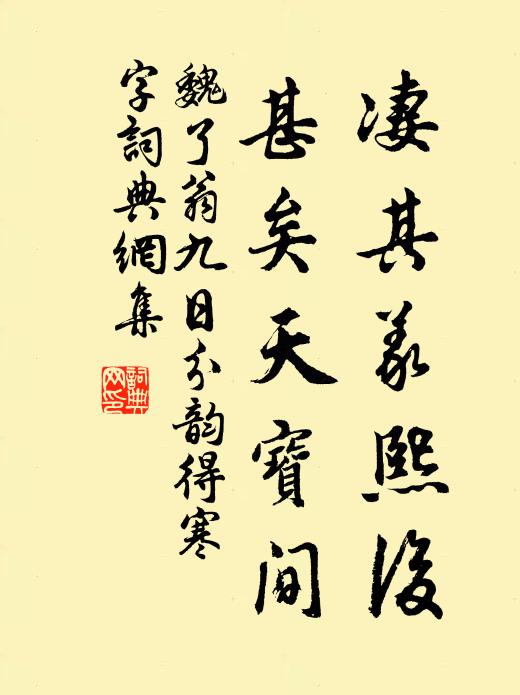 凄其義熙後
甚矣天寶間
魏了翁九日分韵得寒
字詞典網集
詞典
网印